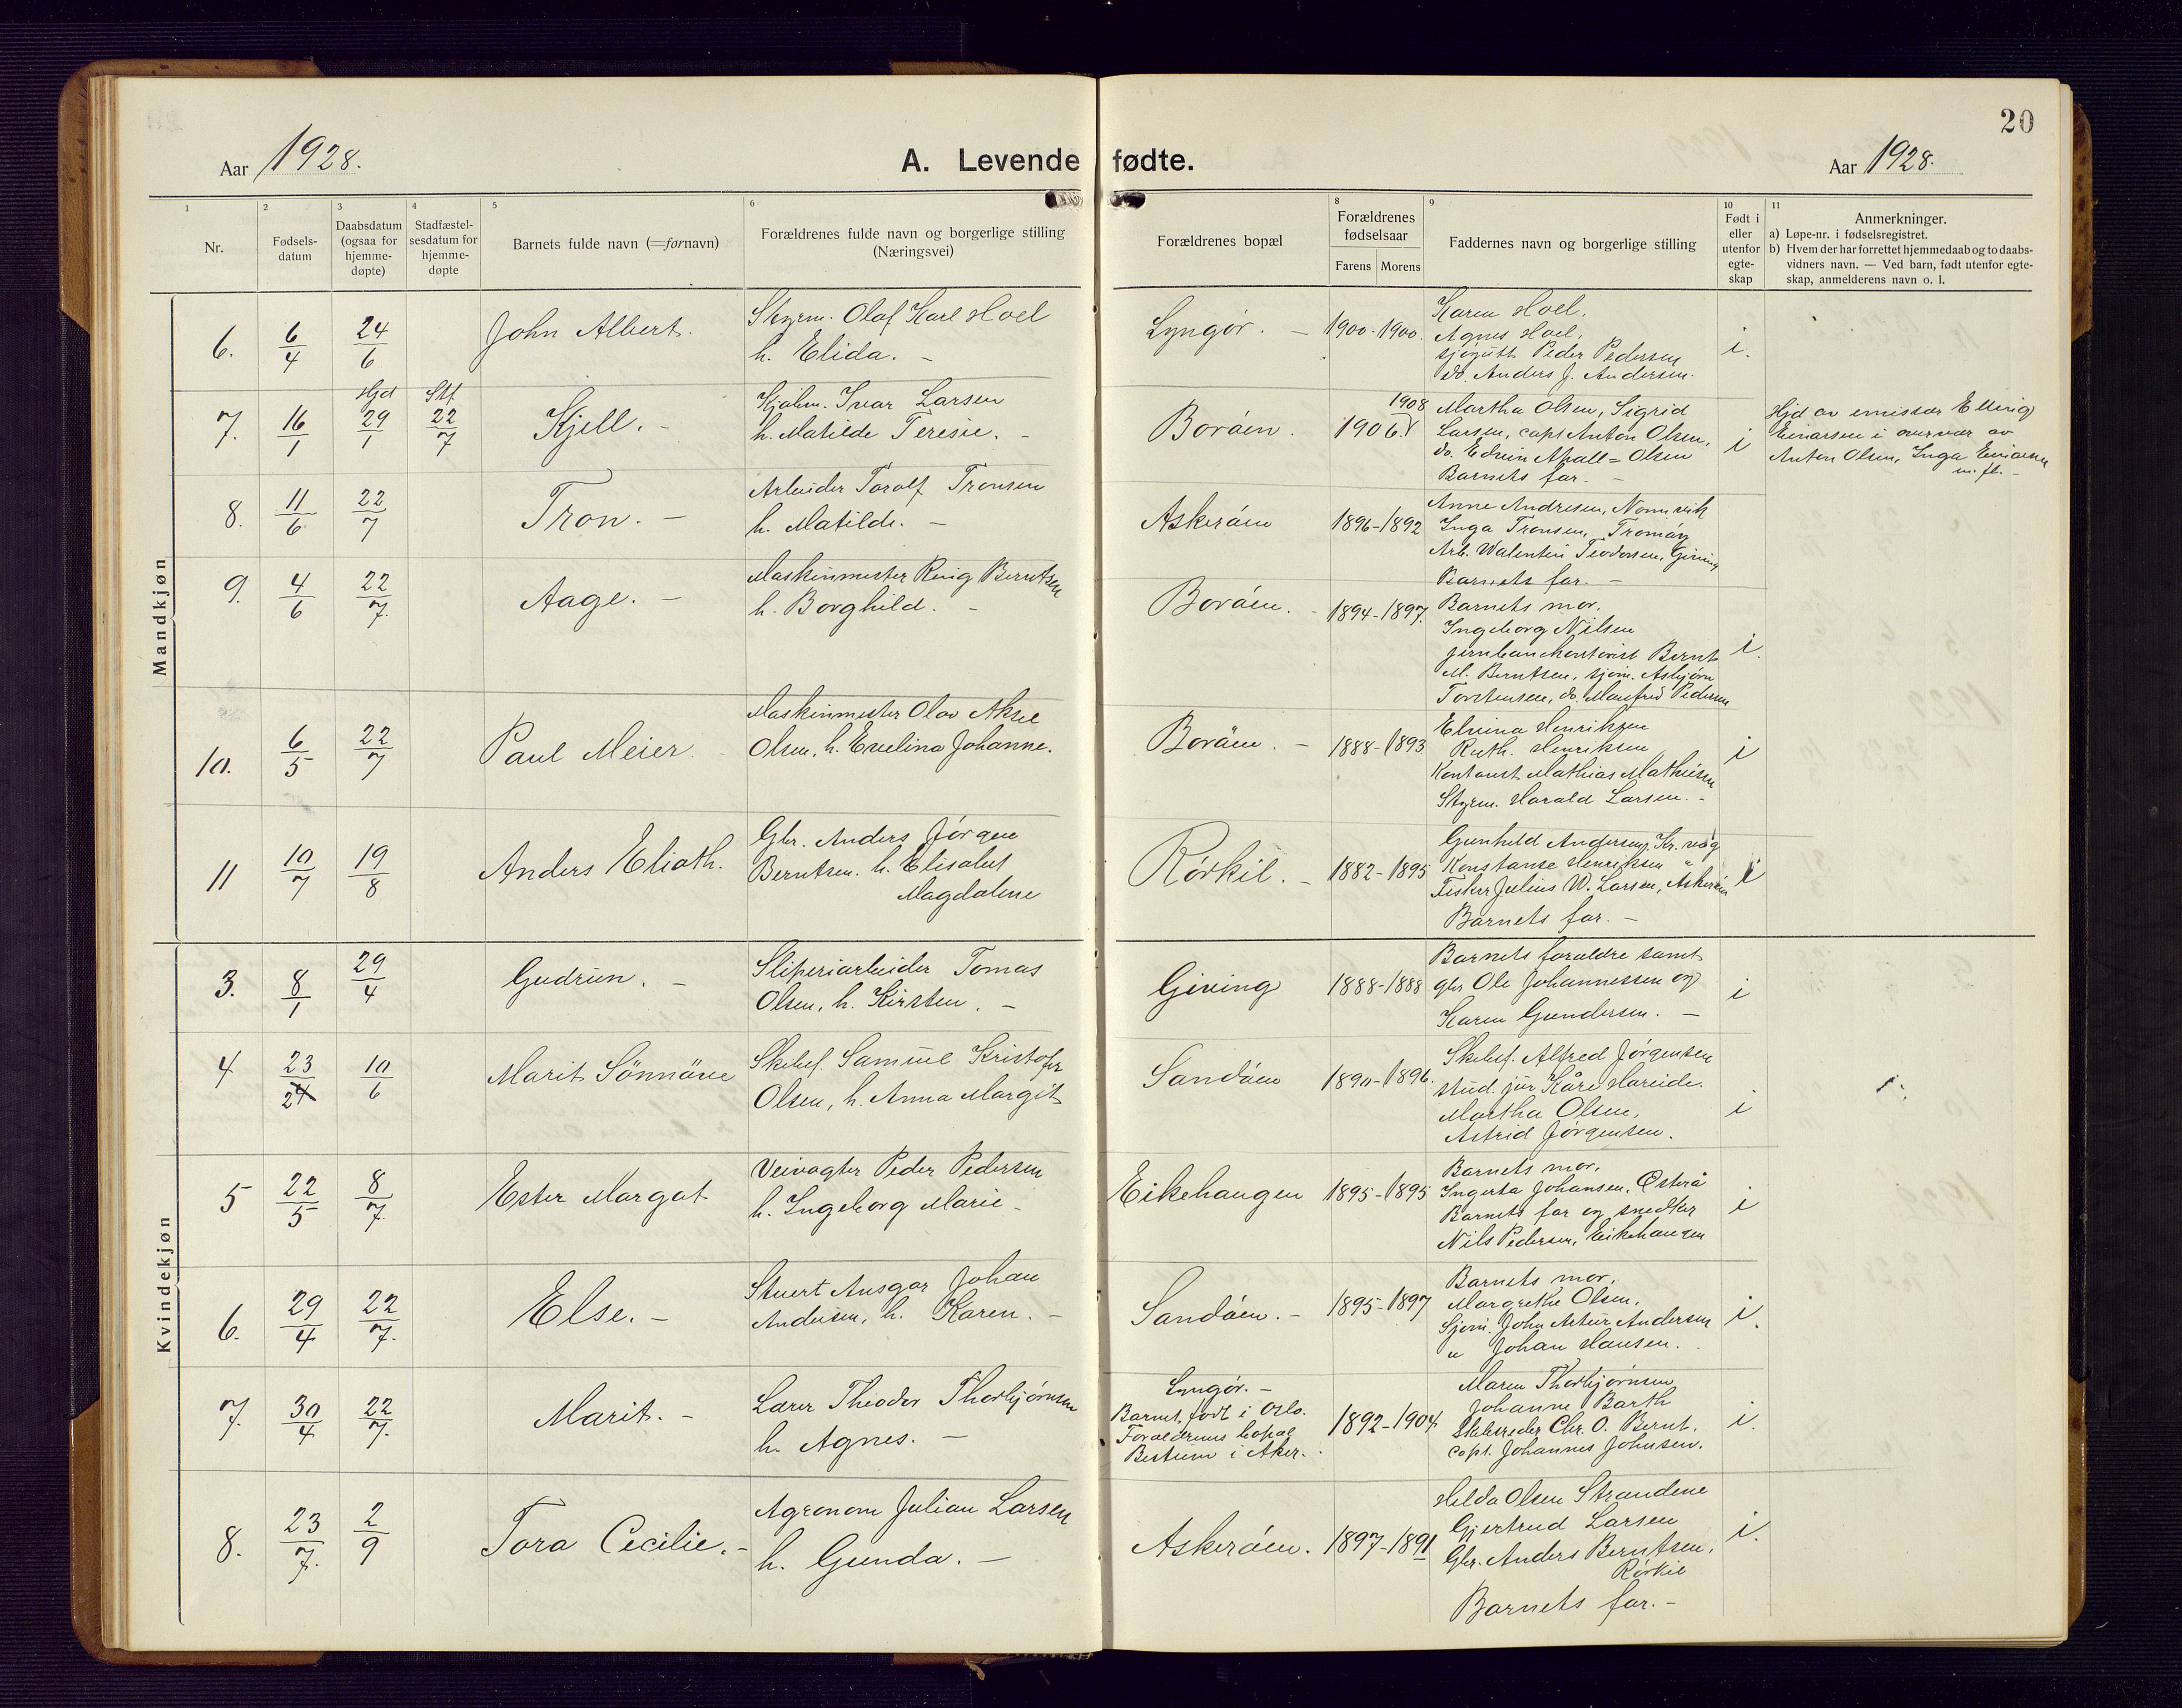 20
Aar 1928.
A. Levende fødte.
Aar 1928.
1 2 3 4 5 6 8 9 10 11
Nr.
Fødsels-
datum
Daabsdatum
(ogsaa for
hjemme-
døpte)
Stadfæstel-
sesdatum for
hjemme-
døpte
Barnets fulde navn (=fornavn)
Forældrenes fulde navn og borgerlige stilling
(Næringsvei)
Forældrenes bopæl
Forældrenes
fødselsaar
Farens Morens
Faddernes navn og borgerlige stilling
Født i
eller
utenfor
egte-
skap
Anmerkninger.
a) Løpe-nr. i fødselsregistret.
b) Hvem der har forrettet hjemmedaab og to daabs-
vidners navn. — Ved barn, født utenfor egte-
skap, anmelderens navn o. l.
Mandkjøn
6. 6/4 24/6 John Albert.
Styrm. Olaf Karl Hoel
h. Elida. -
Lyngør. - 1900-1900.
Karen Hoel,
Agnes Hoel,
sjøgutt Peder Pedersen
do. Anders J. Andersen.
i.
7. 16/1 Hjd 29/1 Stf 22/7 Kjell. -
Ivar Larsen
h. Matilde Teresie. -
Borøen. 1906. 1908
Martha Olsen, Sigrid
Larsen, capt Anton Olsen,
do. Edvin Olsen
Barnets far. -
i
Hjd av emissær Elling
Einarsen i overvær av
Anton Olsen, Inga
m. fl. -
8. 11/6 22/7 Tron. -
Arbeider Toralf Tronsen
h. Matilde. -
Askerøen 1896-1892
Anne Andresen,
Inga Tronsen, Tromøy
Arb. Walentin Teodorsen, Giving
Barnets far. -
9. 4/6 22/7. Aage. -
Maskinmester Berntsen
h. Borghild. -
Borøen. - 1894-1897.
Barnets mor.
Ingeborg Nilsen
jernbanekontorist Bernt
M. Berntsen, sjøm. Asbjørn
Torstensen, do. Manfred Pedersen
i.
10. 6/5 22/7 Paul Meier.
Maskinmester Olav Aksel
Olsen, h. Evelina Johanne.
Borøen. - 1888-1893
Elvina Henriksen
Ruth. Henriksen
Kontorist Mathias Mathiesen
Styrm. Harald Larsen. -
i
11 10/7 19/8 Anders Elioth.
Gbr. Anders Jörgen
Berntsen. h. Elisabet
Magdalene
Rörkil. - 1882-1895
Gunhild Andersen, Kr. våg
Konstanse Henriksen "
Fisker Julius W. Larsen, Askerøen
Barnets far. -
i
Kvindekjøn
3. 8/1 29/4 Gudrun. -
Sliperiarbeider Tomas
Olsen, h. Kirsten. -
Giving 1888-1888
Barnets forældre samt
gbr Ole Johannessen og
Karen Gundersen. -
i
4 23/24 10/6 Marit Sönnöve
Skibsf. Samuel Kristofer
Olsen, h. Anna Margit
Sandøen 1890-1896.
Skibsf. Alfred Jørgensen
stud. jur Kåre Hareide.
Martha Olsen,
Astrid Jørgensen.
i
5 22/5 8/7. Ester Margot
Veivogter Peder Pedersen
h. Ingeborg Marie -
Eikehaugen 1895-1895
Barnets mor,
Johansen, Østerå
Barnets far og snedker
Nils Pedersen, Eikehaugen
i
6. 29/4 22/7. Else. -
Stuert Ansgar Johan
Andersen, h. Karen. -
Sandøen. - 1895-1897
Barnets mor,
Margrethe Olsen,
Sjøm. John Artur Andersen
" Johan Hansen.
i.
7. 30/4 22/7. Marit. -
Lærer Theodor Thorbjørnsen
h. Agnes. -
Lyngør. -
Barnet født i Oslo.
Forældrenes bopæl
Bestum i Aker.
1892-1904
Maren Thorbjørnsen
Johanne Barth
Skibsreder Chr. O. Bernt.
capt. Johannes Johnsen.
i.
8. 23/7. 2/9 Tora Cecilie. -
Agronom Julian Larsen
h. Gunda. -
Askerøen. 1897-1891
Hilda Olsen Strandene
Gjertrud Larsen
Gbr. Anders Berntsen,
Rörkil
Barnets far. -
i.